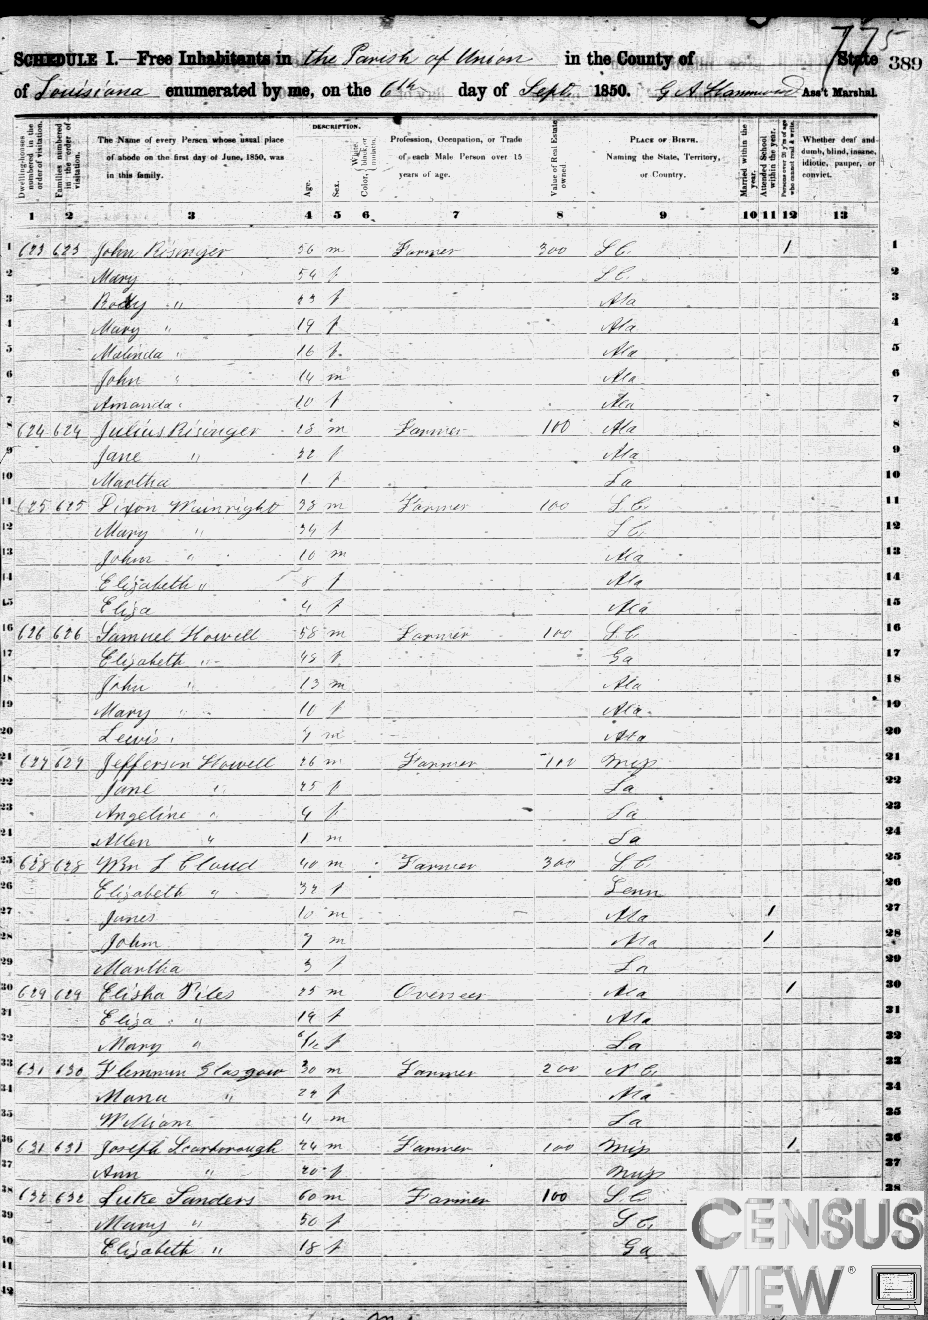 775
SCHEDULE I.—Free Inhabitants in the Parish of Union in the County of State 389
of Louisiana enumerated by me, on the 6th day of Sept 1850. G A Hammond Ass't Marshal.
Dwelling-houses numbered in the order of visitation. Families numbered in the order of visitation. The Name of every Person whose usual place of abode on the first day of June, 1850, was in this family. DESCRIPTION. Age. Sex. Color, White, black, or mulatto. Profession, Occupation, or Trade of each Male Person over 15 years of age. Value of Real Estate owned. PLACE OF BIRTH. Naming the State, Territory, or Country. Married within the year. Attended School within the year. Persons over 20 y'rs of age who cannot read & write. Whether deaf and dumb, blind, insane, idiotic, pauper, or convict.
1 2 3 4 5 6 7 8 9 10 11 12 13
1 623 623 John Risinger 56 m Farmer 300 S C. 1 1
2 Mary 54 f S C. 2
3 " 23 f Ala 3
4 Mary " 19 f Ala 4
5 Malinda " 16 f Ala 5
6 John " 14 m Ala 6
7 Amanda " 10 f Ala 7
8 624 624 Julius Risinger m Farmer 100 Ala 8
9 Jane " 22 f Ala 9
10 Martha 1 f La 10
11 625 625 Dixon Wainright 38 m Farmer 100 S. C. 11
12 Mary " 34 f S C. 12
13 John " 10 m Ala 13
14 Elizabeth " 8 f Ala 14
15 Eliza 4 f Ala 15
16 626 626 Samuel Howell 58 m Farmer 100 S. C. 16
17 Elizabeth " 45 f Ga 17
18 John " 13 m Ala 18
19 Mary " f Ala 19
20 Lewis " 7 m Ala 20
21 627 627 Jefferson Howell 26 m Farmer 100 Miss 21
22 Jane " 25 f La 22
23 Angeline " 4 f La 23
24 Allen " 1 m La 24
25 628 628 Wm L Cloud 40 m Farmer 300 S C. 25
26 Elizabeth " 32 f Tenn 26
27 James 10 m Ala 1 27
28 John 7 m Ala 1 28
29 Martha 3 f La 29
30 629 629 Elisha Piles 25 m Overseer Ala 1 30
31 Eliza " 19 f Ala 31
32 Mary " 6/12 f La 32
33 631 630 Flemmin Glasgow 30 m Farmer 200 N C. 33
34 " f Ala 34
35 William 4 m La 35
36 631 631 Joseph Scarborough 24 m Farmer 100 Miss 1 36
37 Ann " 20 f Miss 37
38 632 632 Luke Sanders 60 m Farmer 100 S. C. 38
39 Mary " 50 f S C.
40 Elizabeth " 18 f Ga
41
42
CENSUS
VIEW®